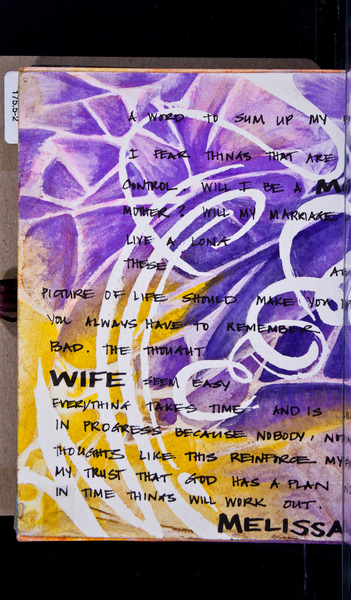 175.5-2
A WORD TO SUM UP MY
I FEAR THINGS THAT ARE
CONTROL. WILL I BE A M
MOTHER? WILL MY MARRIAGE
LIVE A LONG
THESE
PICTURE OF LIFE SHOULD MAKE YOU
YOU ALWAYS HAVE TO REMEMBER
BAD. THE THOUGHT
WIFE SEEM EASY
EVERYTHING TAKES TIME AND IS
IN PROGRESS BECAUSE NOBODY, NOT
THOUGHTS LIKE THIS REINFORCE MY
MY TRUST THAT GOD HAS A PLAN
IN TIME THINGS WILL WORK OUT.
MELISSA